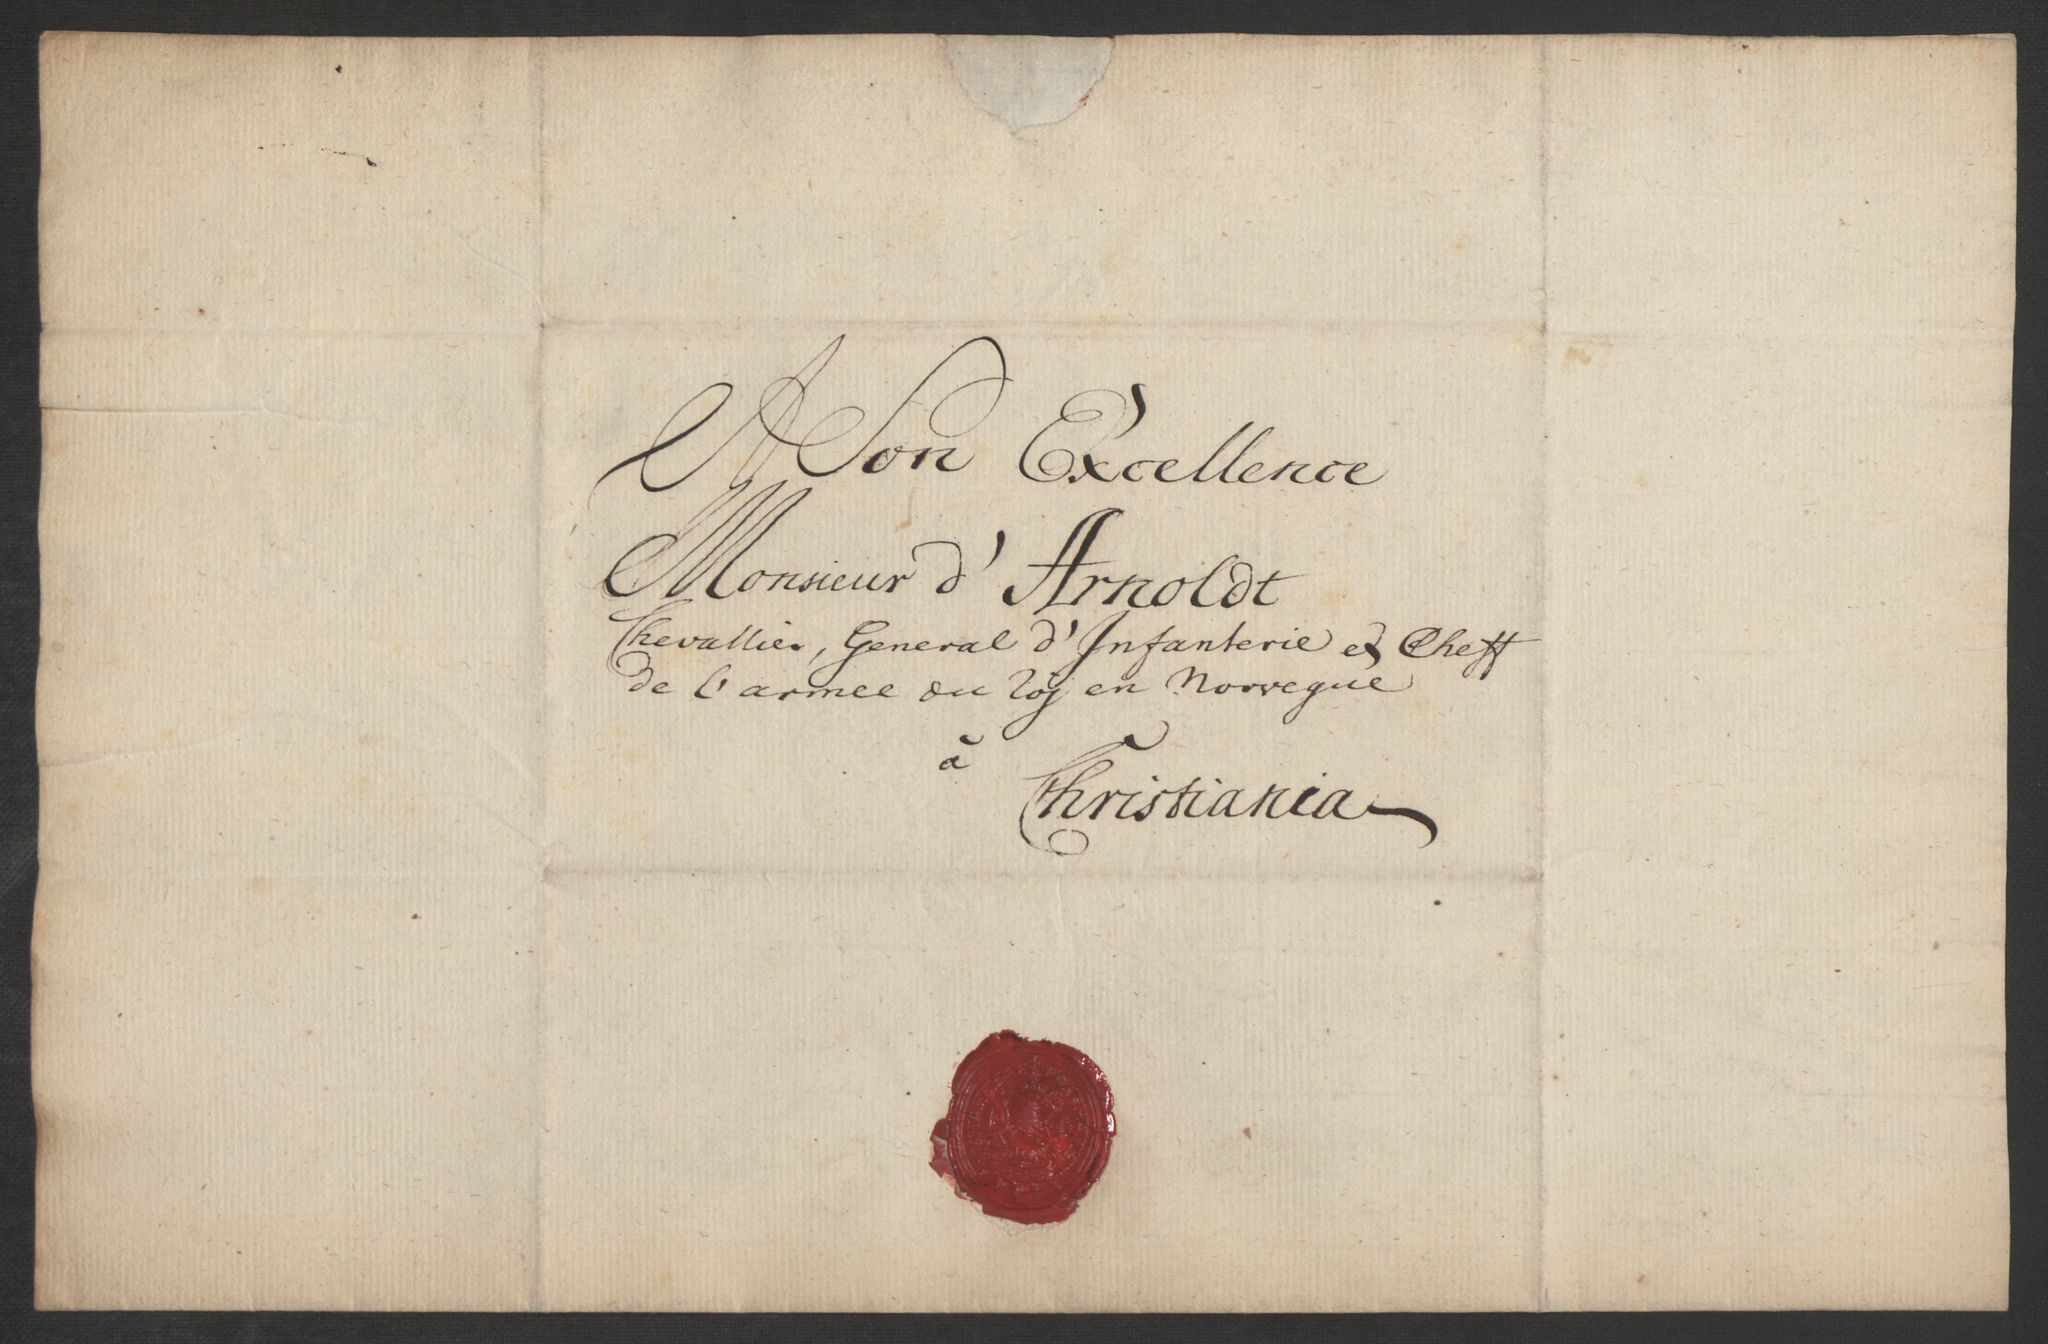 A Son Excellence
Monsieur d'Arnoldt
Chevallier, General d'Infanterie et Cheff
de l'armee du roy en Norvegue
à
Christiania